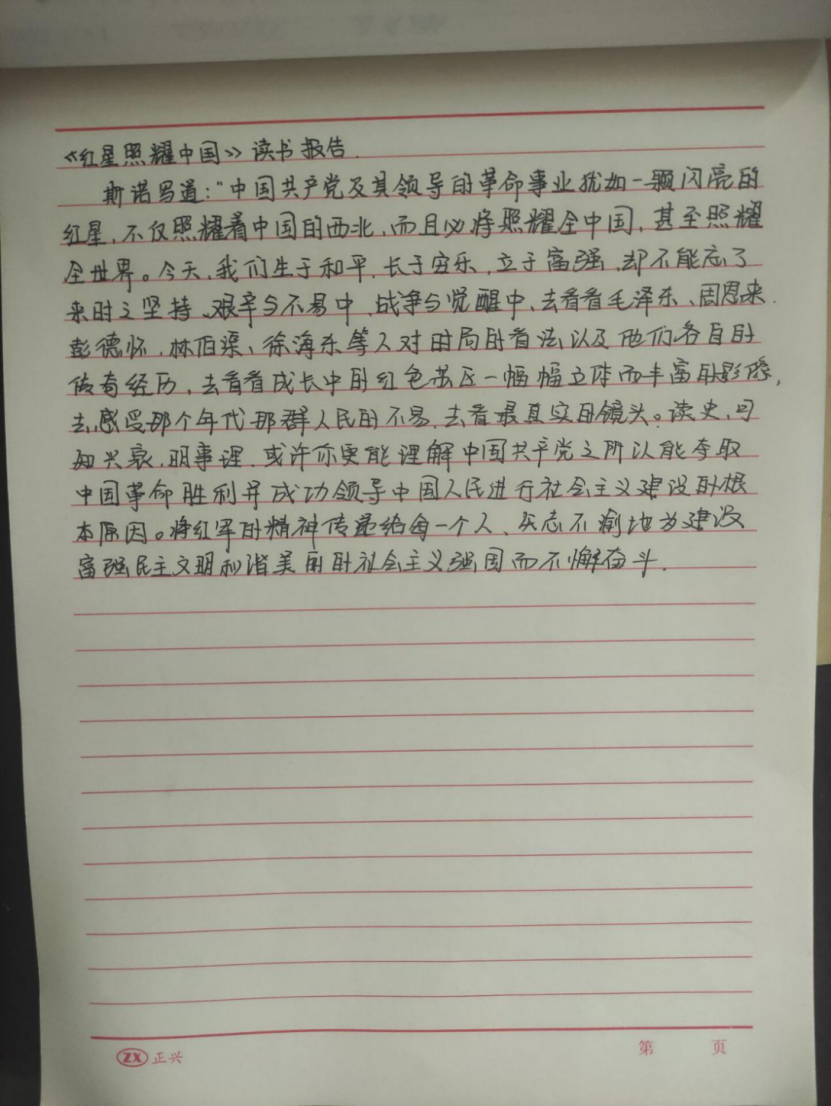 《红星照耀中国》读书报告.
斯诺写道:"中国共产党及其领导的革命事业犹如一颗闪亮的
红星,不仅照耀着中国的西北,而且必将照耀全中国,甚至照耀
全世界。今天,我们生于和平,长于安乐,立于富强,却不能忘了
来时之坚持、艰辛与不易中,战争与觉醒中,去看看毛泽东、周恩来.
彭德怀、林伯渠、徐海东等人对时局的看法以及他们各自的
传奇经历,去看看成长中的红色苏区一幅幅立体而丰富的影像,
去感受那个年代那群人民的不易,去看最真实的镜头。读史,可
知兴衰,明事理,或许你更能理解中国共产党之所以能夺取
中国革命胜利并成功领导中国人民进行社会主义建设的根
本原因。将红军的精神传递给每一个人、矢志不渝地为建设
富强民主文明和谐美丽的社会主义强国而不懈奋斗.
ZX 正兴
第 页